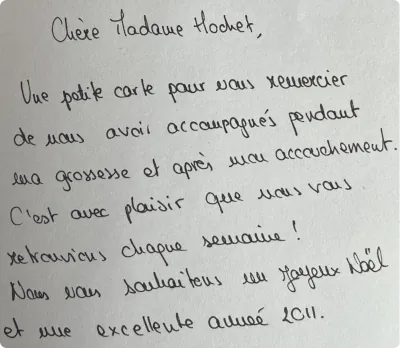 Chère Madame Hochet,
Une petite carte pour vous remercier
de nous avoir accompagnés pendant
ma grossesse et après mon accouchement.
C'est avec plaisir que nous vous
retrouvions chaque semaine !
Nous vous souhaitons un Joyeux Noël
et une excellente année 2011.